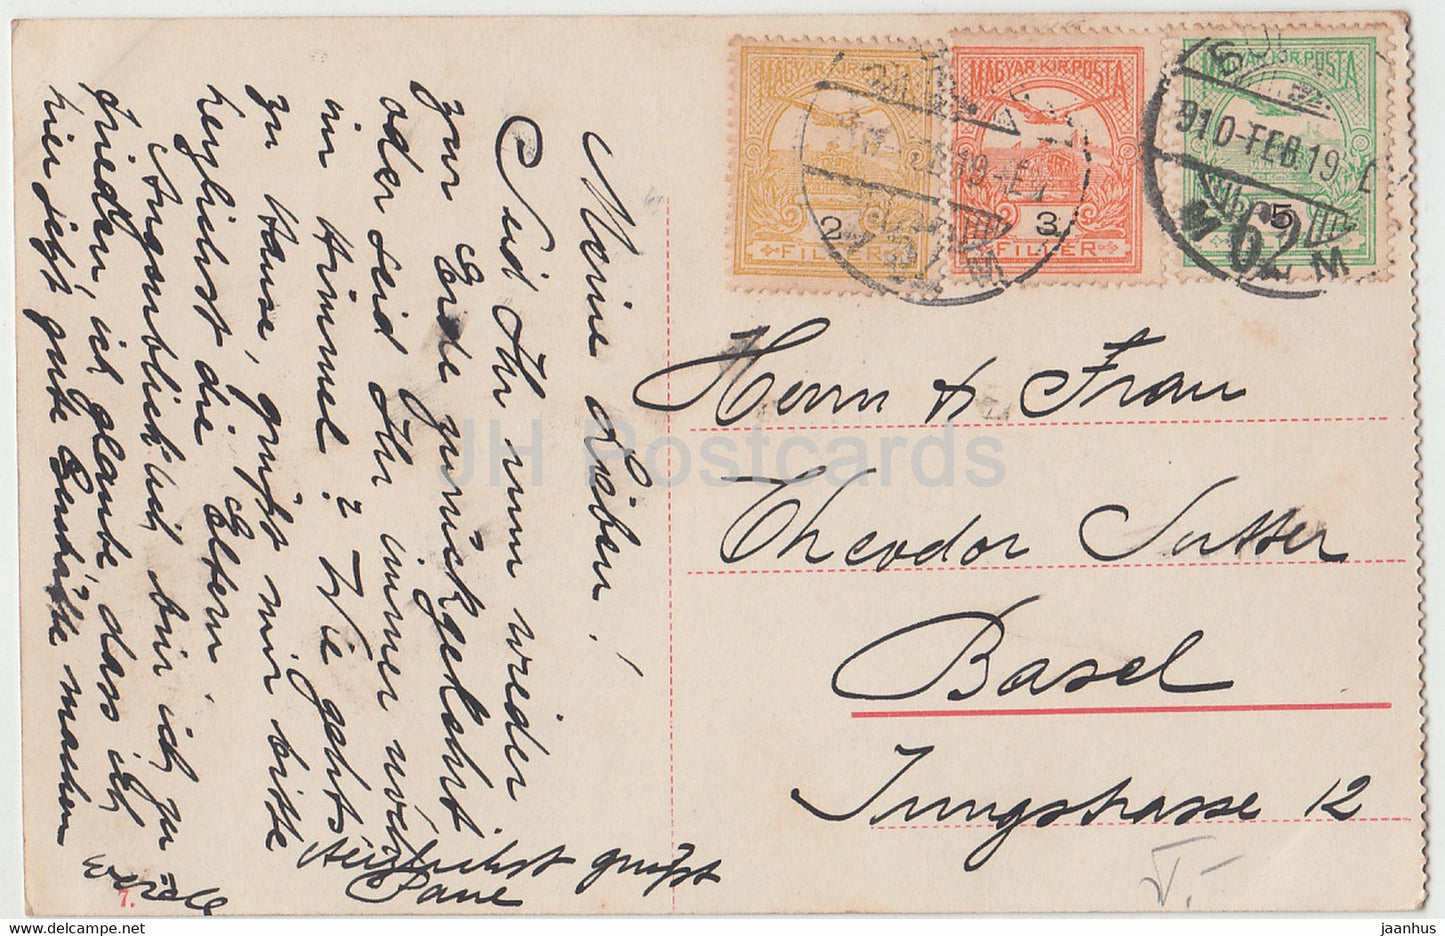 Meine Lieben!
Seid Ihr nun wieder
zur Erde zurückgekehrt
oder seid Ihr immer noch
im Himmel? Wie gehts
zu Hause, grüsst mir bitte
herzlichst die Eltern.
Augenblicklich bin ich zu
frieden, ich glaube, dass ich
hier jetzt gute Geschäfte machen
werde
Herzlichst grüsst
MAGYAR KIR POSTA
2
FILLER
MAGYAR KIR POSTA
3
FILLER
MAGYAR KIR POSTA
5
910-FEB 19
62
M
Herrn & Frau
Theodor Sutter
Basel
Jungstrasse 12
7.
JH Postcards
www.delcampe.net
jaanhus